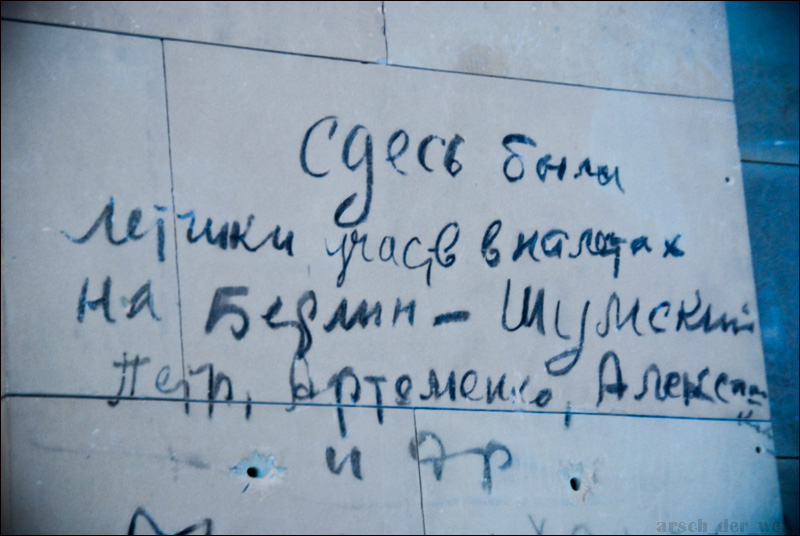 Сдесь были
летчики участв в налетах
на Берлин - Шумский
Петр, Артеменко, Алексе
и др
arsch_der_we